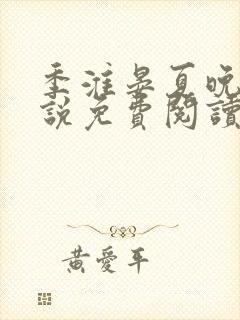 季淮晏夏晚
說免費閱讀
黃愛平